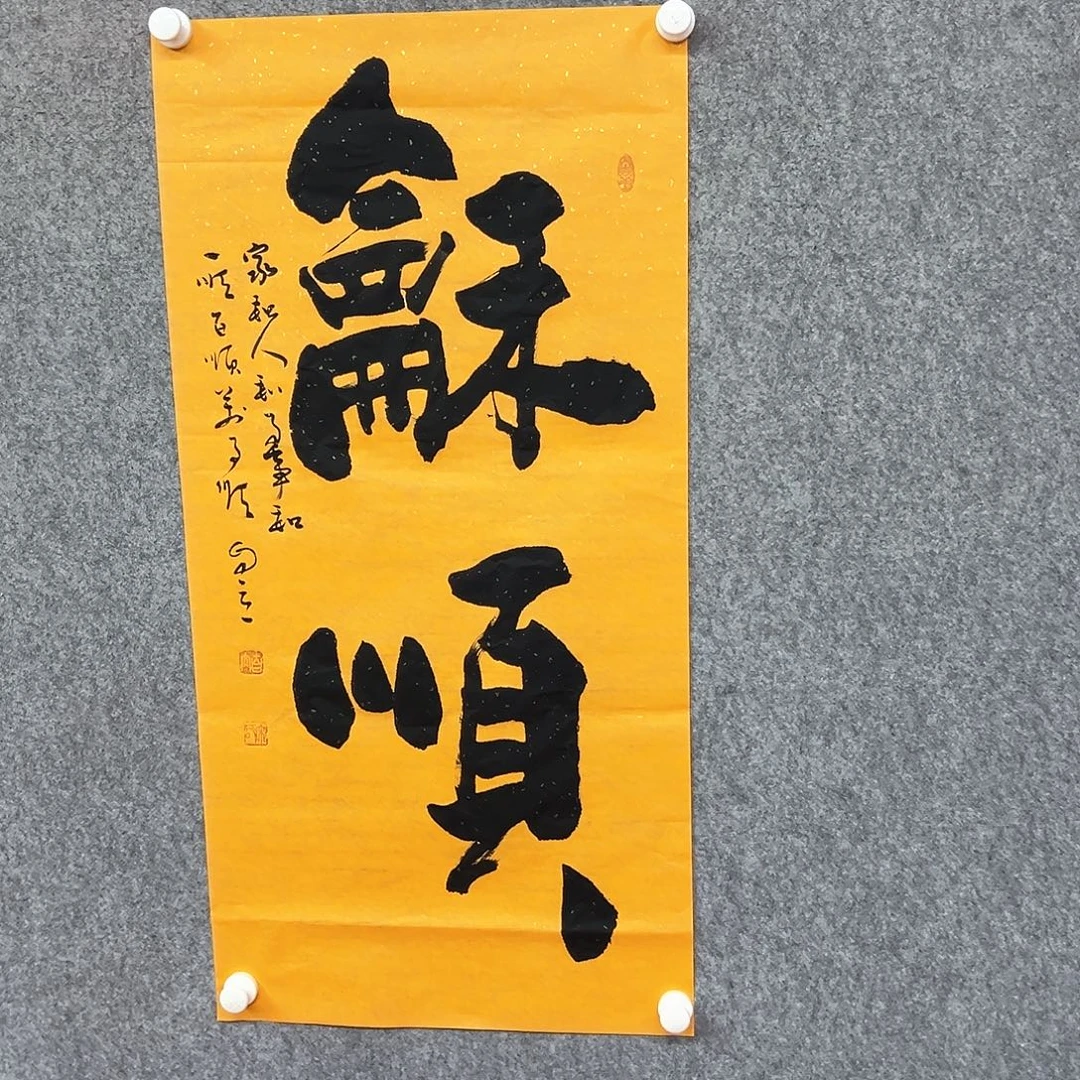 龢順
家和人和萬事和
一順百順萬事順